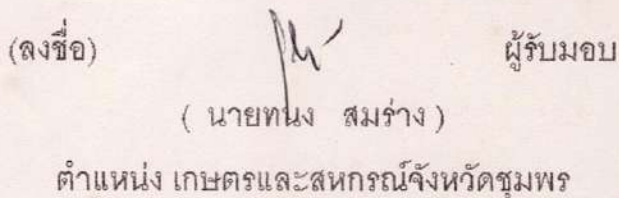 (ลงชื่อ) ผู้รับมอบ
( นายทนง สมร่าง )
ตำแหน่ง เกษตรและสหกรณ์จังหวัดชุมพร